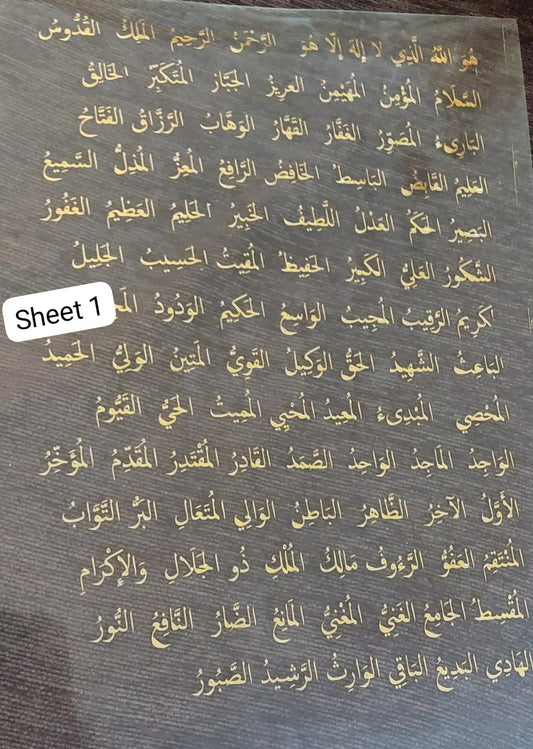 هُوَ اللهُ الَّذِي لَا إِلهَ إِلَّا هُوَ الرَّحْمٰنُ الرَّحِيمُ المَلِكُ القُدُّوسُ
السَّلَامُ المُؤْمِنُ المُهَيْمِنُ العَزِيزُ الجَبَّارُ المُتَكَبِّرُ الخَالِقُ
البَارِىءُ المُصَوِّرُ الغَفَّارُ القَهَّارُ الوَهَّابُ الرَّزَّاقُ الفَتَّاحُ
العَلِيمُ القَابِضُ البَاسِطُ الخَافِضُ الرَّافِعُ المُعِزُّ المُذِلُّ السَّمِيعُ
البَصِيرُ الحَكَمُ العَدْلُ اللَّطِيفُ الخَبِيرُ الحَلِيمُ العَظِيمُ الغَفُورُ
الشَّكُورُ العَلِيُّ الكَبِيرُ الحَفِيظُ المُقِيتُ الحَسِيبُ الجَلِيلُ
الكَرِيمُ الرَّقِيبُ المُجِيبُ الوَاسِعُ الحَكِيمُ الوَدُودُ
Sheet 1
البَاعِثُ الشَّهِيدُ الحَقُّ الوَكِيلُ القَوِيُّ المَتِينُ الوَلِيُّ الحَمِيدُ
المُحْصِي المُبْدِىءُ المُعِيدُ المُحْيِي المُمِيتُ الحَيُّ القَيُّومُ
الوَاجِدُ المَاجِدُ الوَاحِدُ الصَّمَدُ القَادِرُ المُقْتَدِرُ المُقَدِّمُ المُؤَخِّرُ
الأَوَّلُ الآخِرُ الظَّاهِرُ البَاطِنُ الوَالِي المُتَعَالِ البَرُّ التَّوَّابُ
المُنْتَقِمُ العَفُوُّ الرَّءُوفُ مَالِكُ المُلْكِ ذُو الجَلَالِ وَالإِكْرَامِ
المُقْسِطُ الجَامِعُ الغَنِيُّ المُغْنِيُّ المَانِعُ الضَّارُ النَّافِعُ النُّورُ
الهَادِي البَدِيعُ البَاقِي الوَارِثُ الرَّشِيدُ الصَّبُورُ